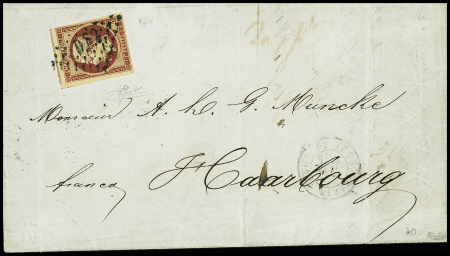 Monsieur A. h. G. Muncke
franco Haarbourg